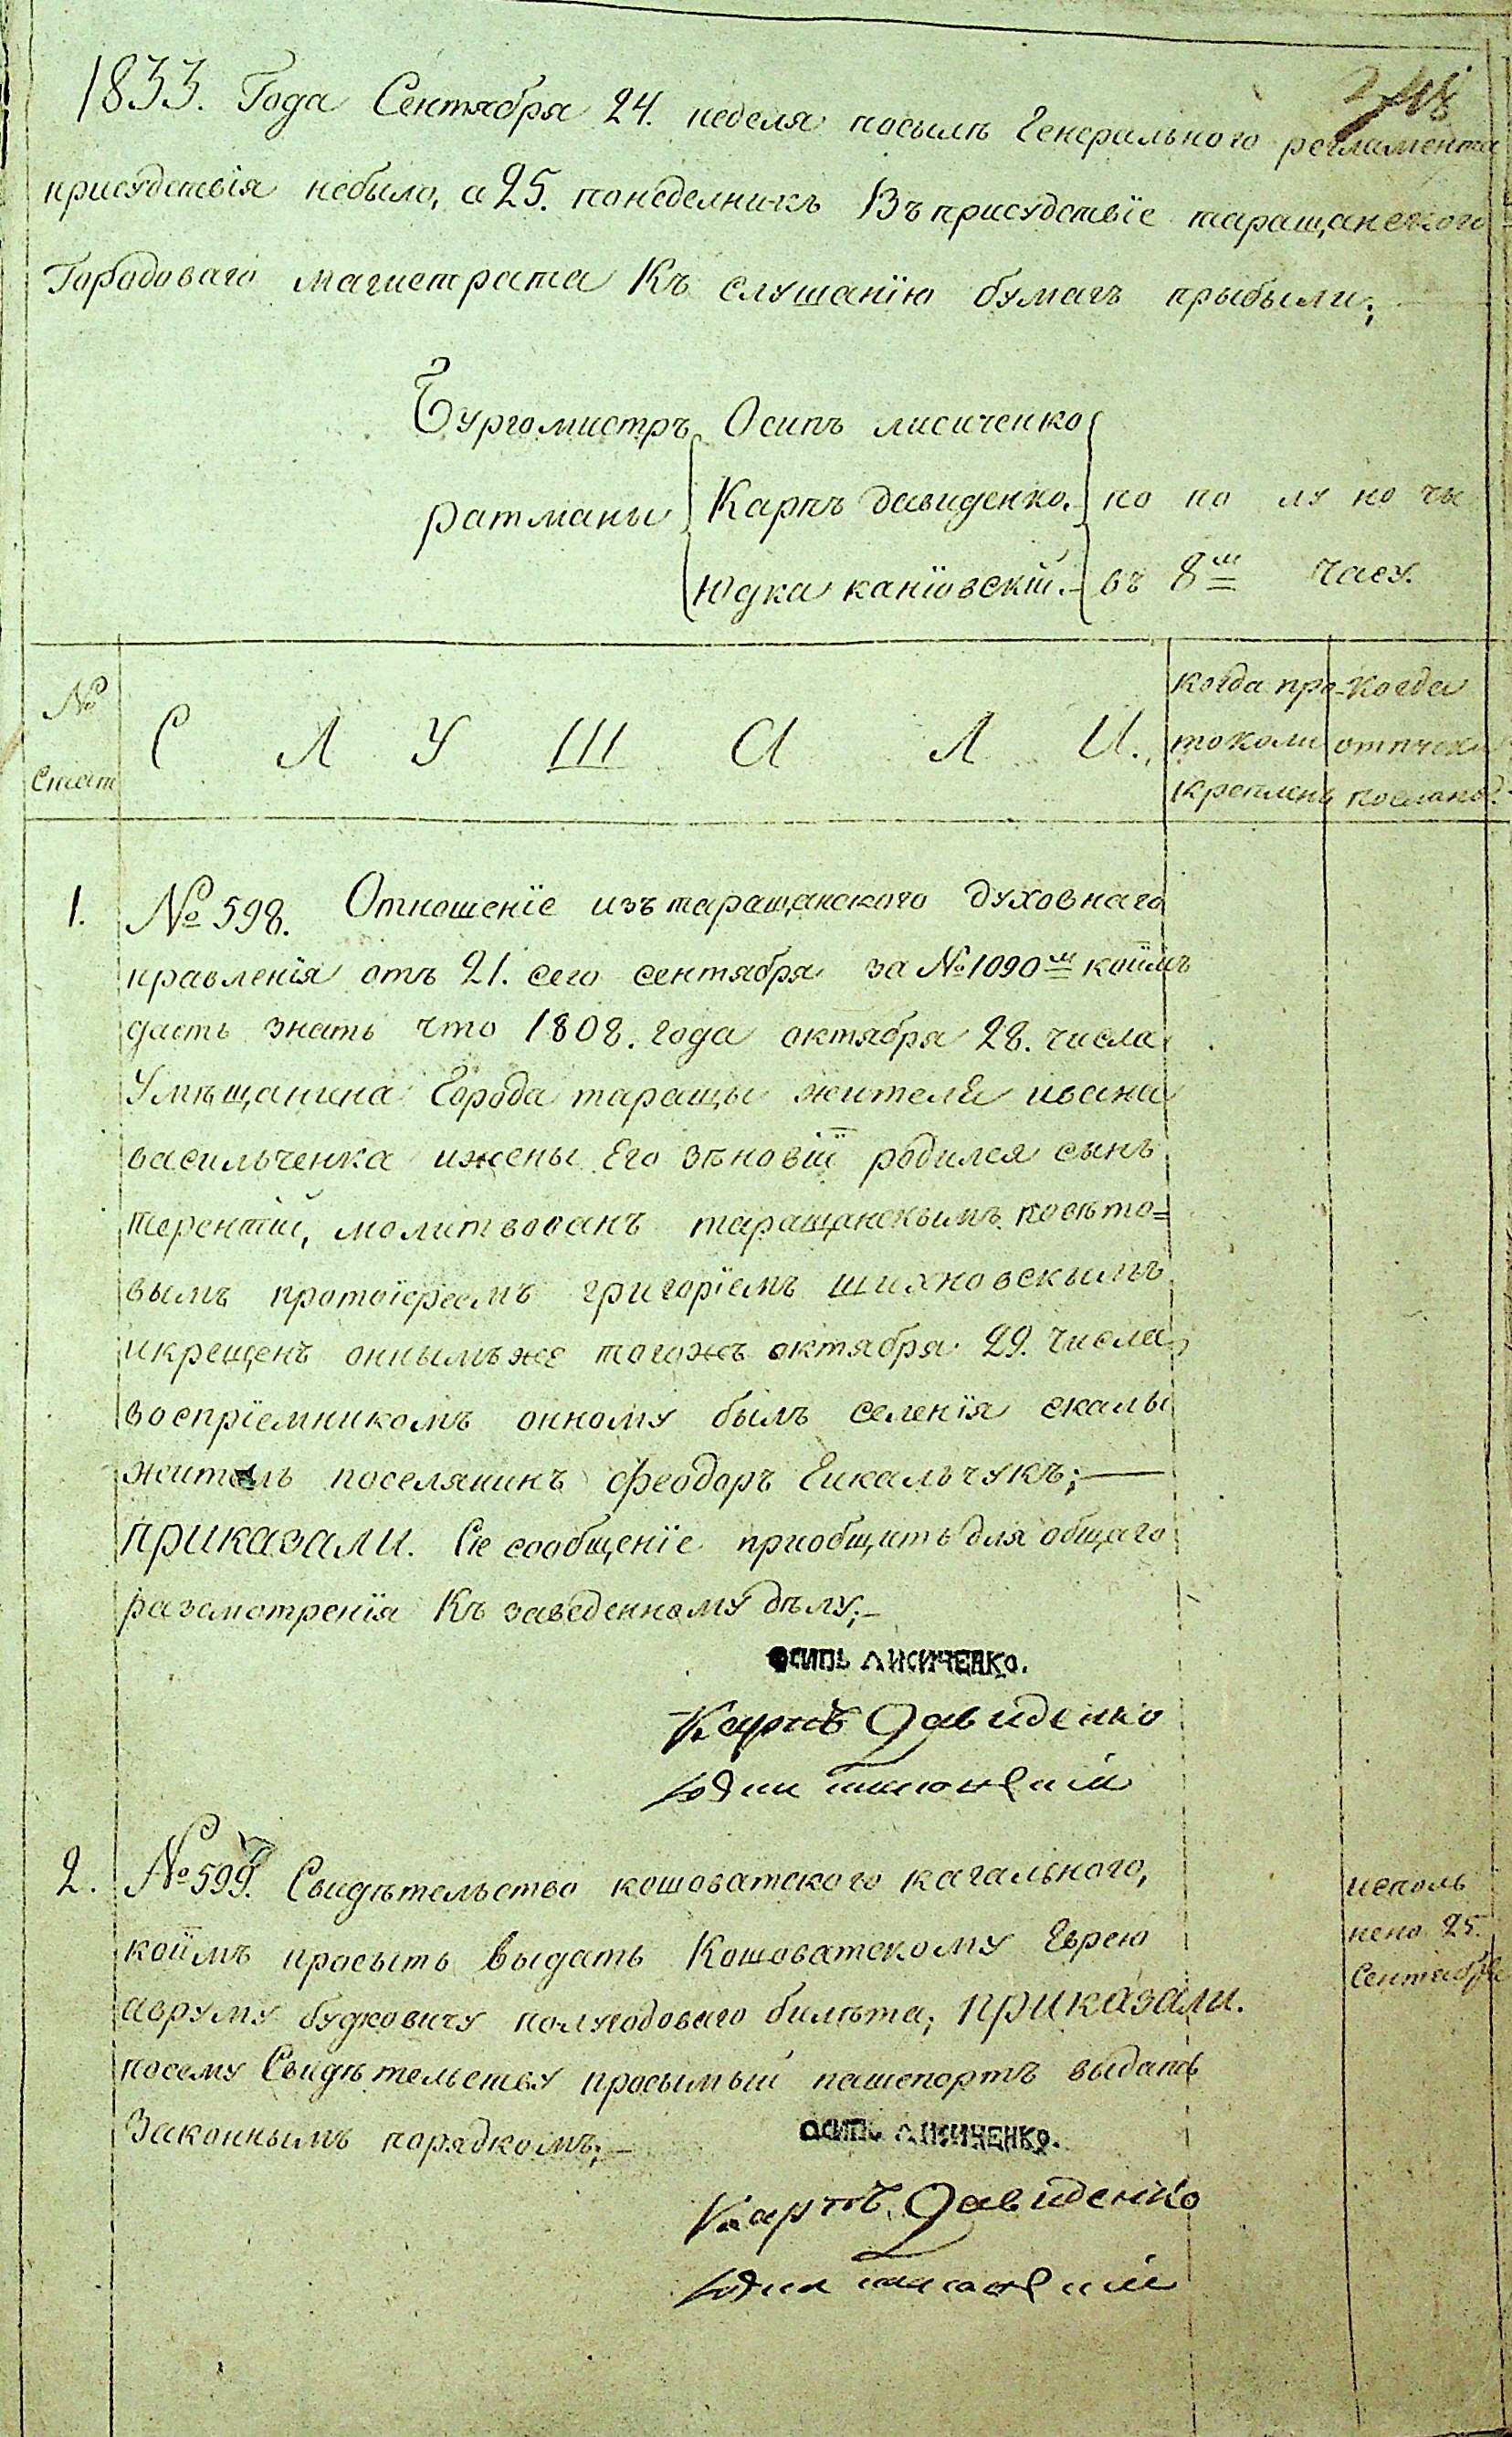 1833. Года Сентября 24. неделя посылѣ Генерального регламента
присудствія небыло, а 25. понеделникъ Въ присудствїе таращанского
Городоваго магистрата Къ слушанїю бумагъ прыбыли;
Бургомистръ Осипъ лисиченко
ратманы Карпъ давиденко. по по лу но чы
Юдка канїовскїй. въ 8м часу.
№ стат
С Л У Ш А Л И.
когда протоколи крепленъ
Когда отпуски посланы
1. № 598. Отношенїе изъ таращанского духовнаго
правленїя отъ 21. сего сентября за № 1090м коїмъ
дастъ знать что 1808. года октября 28. числа
Умѣщанина Города таращы жителя ивана
васильченка ижены Его зѣновїй родился сынъ
терентїй, молитвованъ таращанскымъ повѣто=
вымъ протоїереемъ григорїемъ шихновскымъ
икрещенъ оннымъже тогожъ октября 29. числа,
воспрїемникомъ онному былъ селенїя скалы
житель поселянинъ Феодоръ Гикальчукъ;
приказали. Сїе сообщенїе приобщить для общаго
разсмотренїя Къ заведенному дѣлу;
осипъ лисиченко.
Карпъ Давиденко
2. № 599. Свидѣтельство кошоватского кагального,
коїмъ просытъ выдать Кошоватскому Еврею
авруму будковичу полугодоваго билѣта; приказали.
посему Свидѣтельству просымый пашепортъ выдать
Законнымъ порядкомъ;
исполнено 25. Сентября
осипъ лисиченко.
Карпъ Давиденко